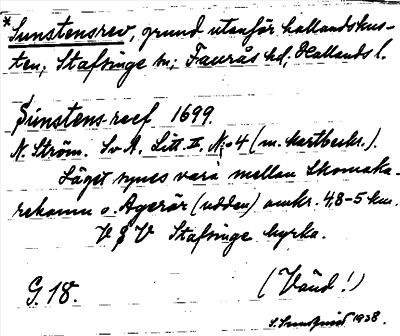 *Sunstensrev, grund utanför hallandskus-
ten; Stafsinge sn; Faurås hd; Hallands l.
Sunstens reef 1699.
N. Ström. Sv A. Litt. II, N:o 4 (m. Kartbeckr.).
Läget synes vara mellan Skomaka-
rekamn o. Agerör (udden) omkr. 4,8-5 km.
V § V Stafsinge kyrka.
G. 18.
(Vänd!)
1938.